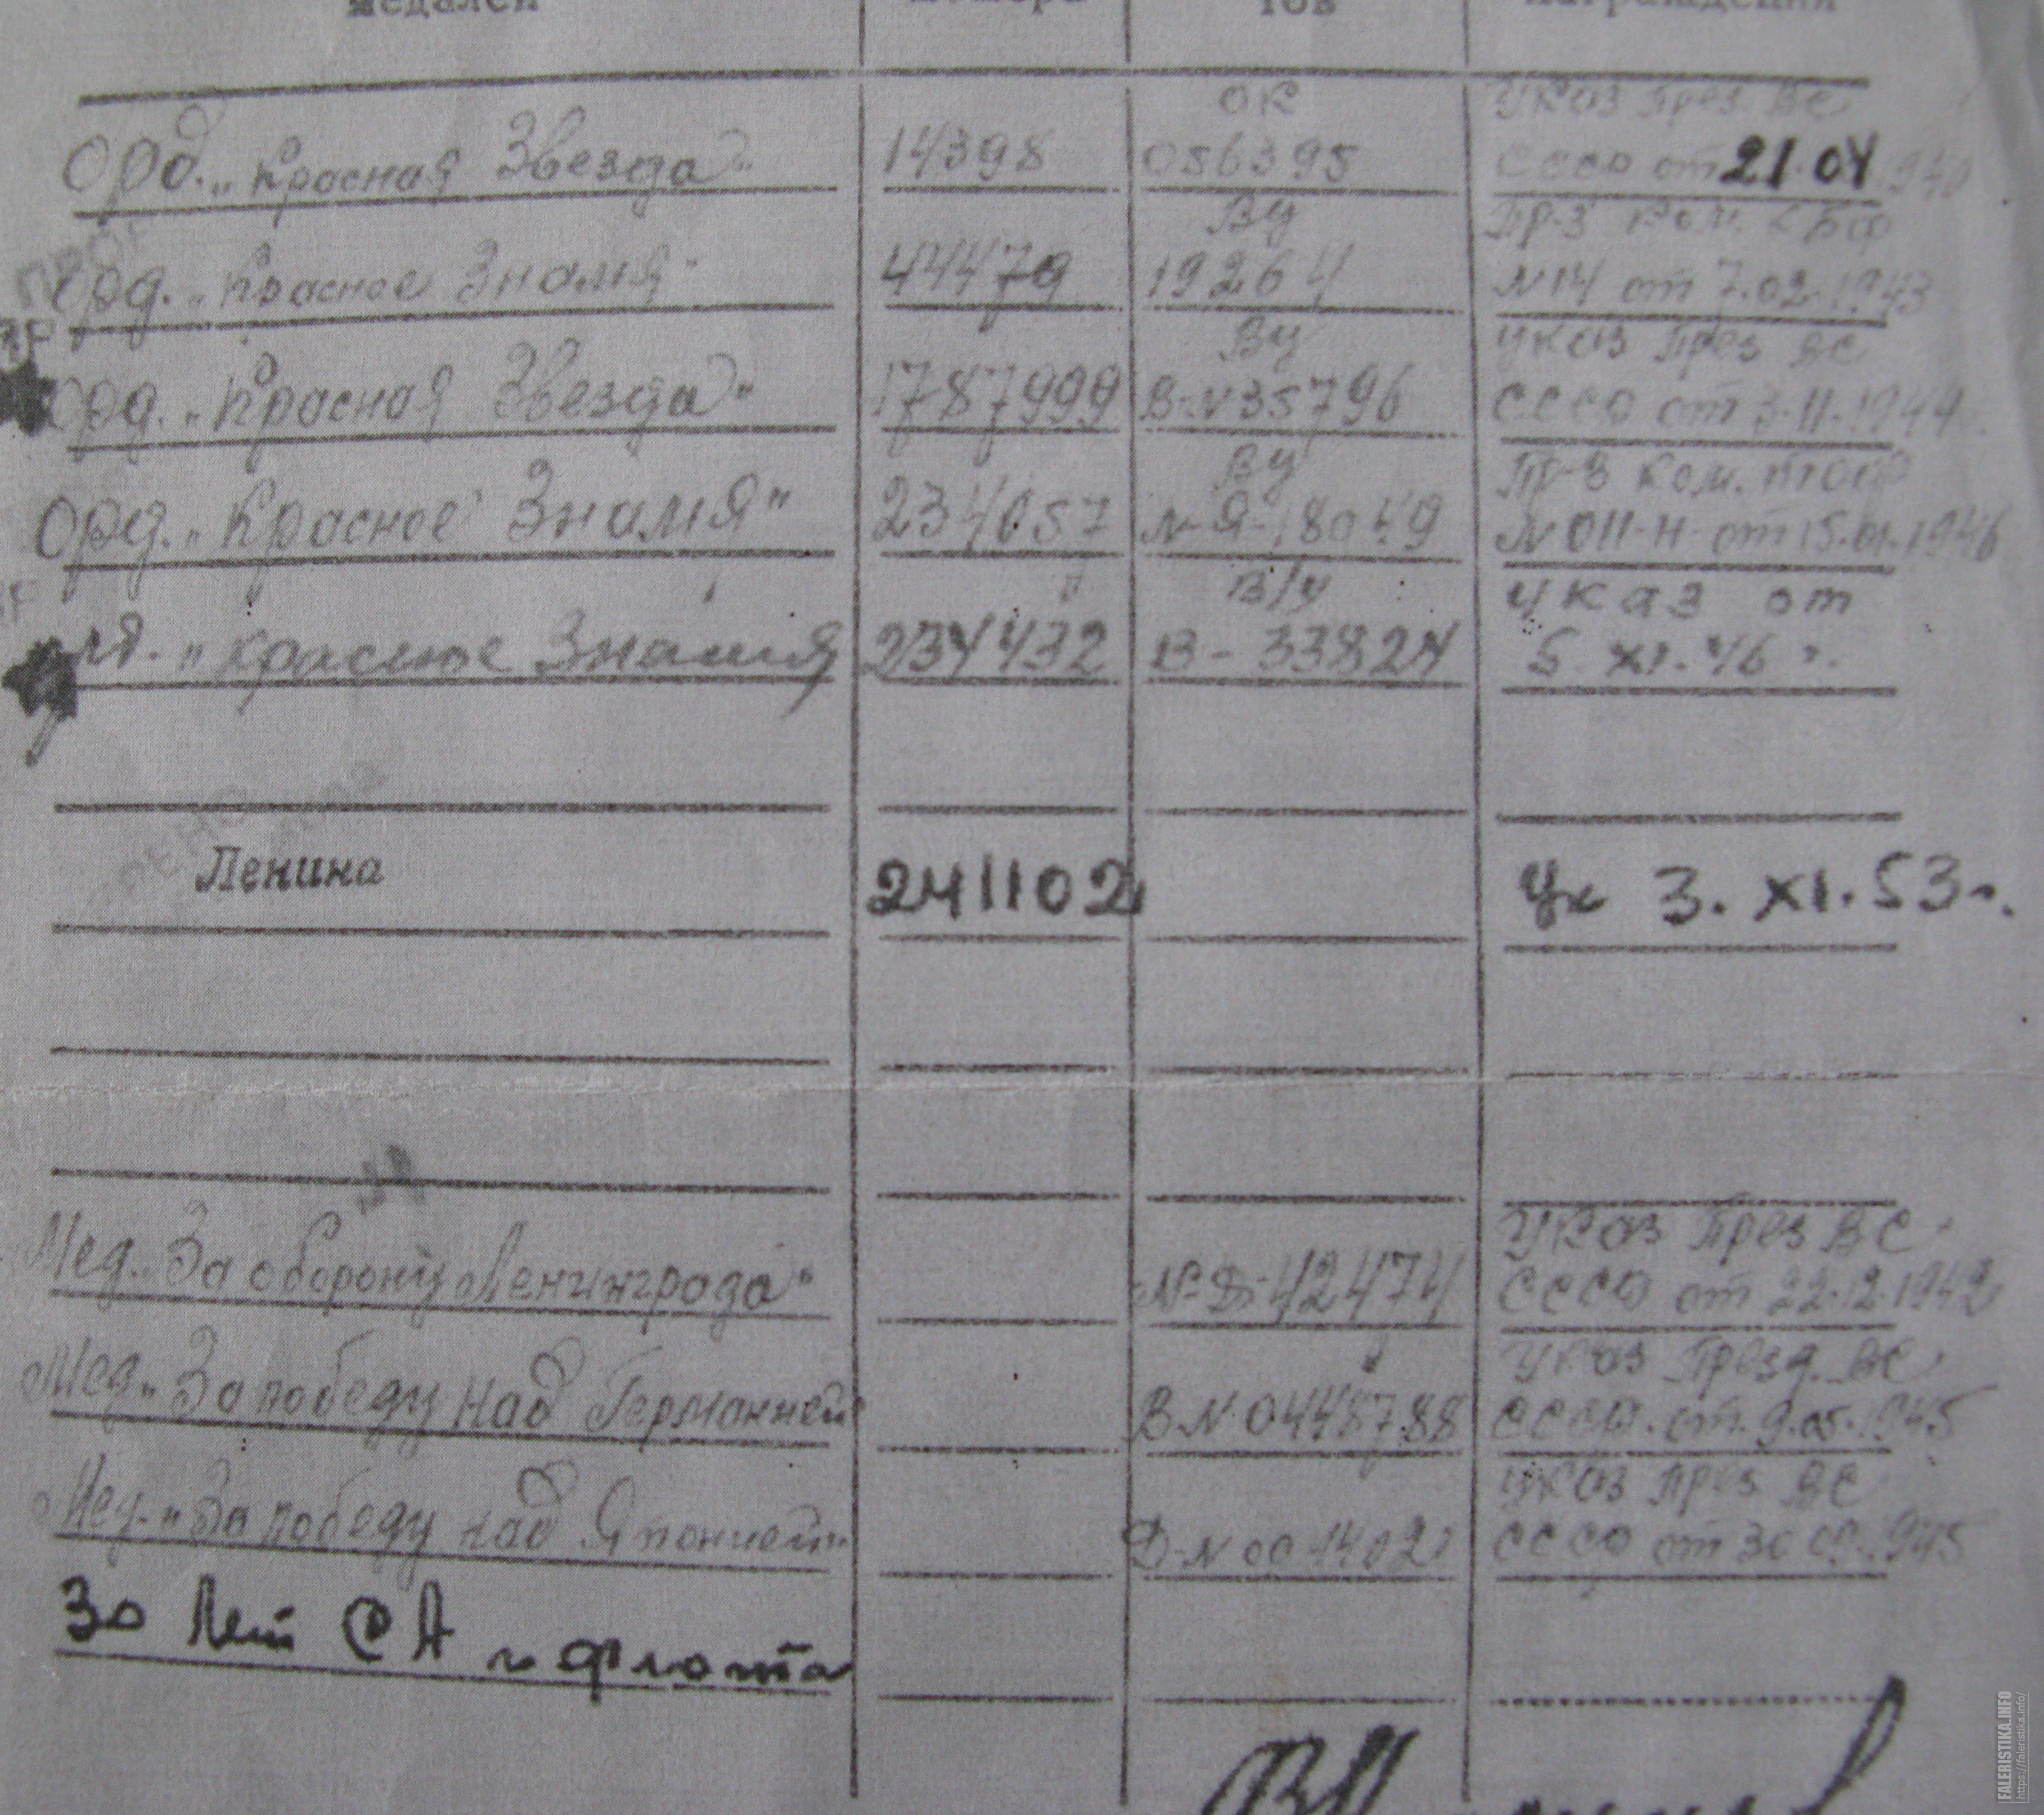 медалей номера тов награждения
ОК Указ През ВС
Орд. „Красная Звезда" 14398 056395 СССР от 21.04.1940
ВУ Пр-з Ком. КБФ
орд. „Красное Знамя" 44479 19264 N14 от 7.02.1943
ВУ Указ През ВС
орд. „Красная Звезда" 1787999 В-N35796 СССР от 3.11.1944
ВУ Пр-з Ком. ТОФ
Орд. „Красное Знамя" 234057 N-Я-18049 N 011-Н от 15.01.1946
В/у Указ от
„Красное Знамя 234432 В-33824 5.XI.46 г.
Ленина 241102 Ук 3.XI.53г.
Указ През ВС
Мед. „За оборону Ленинграда" N-Д-42474 СССР от 22.12.1942
Указ Презд. ВС
Мед. „За победу над Германией В-N 0448788 СССР. от. 9.05.1945
Указ През ВС
Мед. „За победу над Японией" Д-N 001402 СССР от 30.09.1945
30 лет СА и флота
FALERISTIKA.INFO
https://faleristika.info/